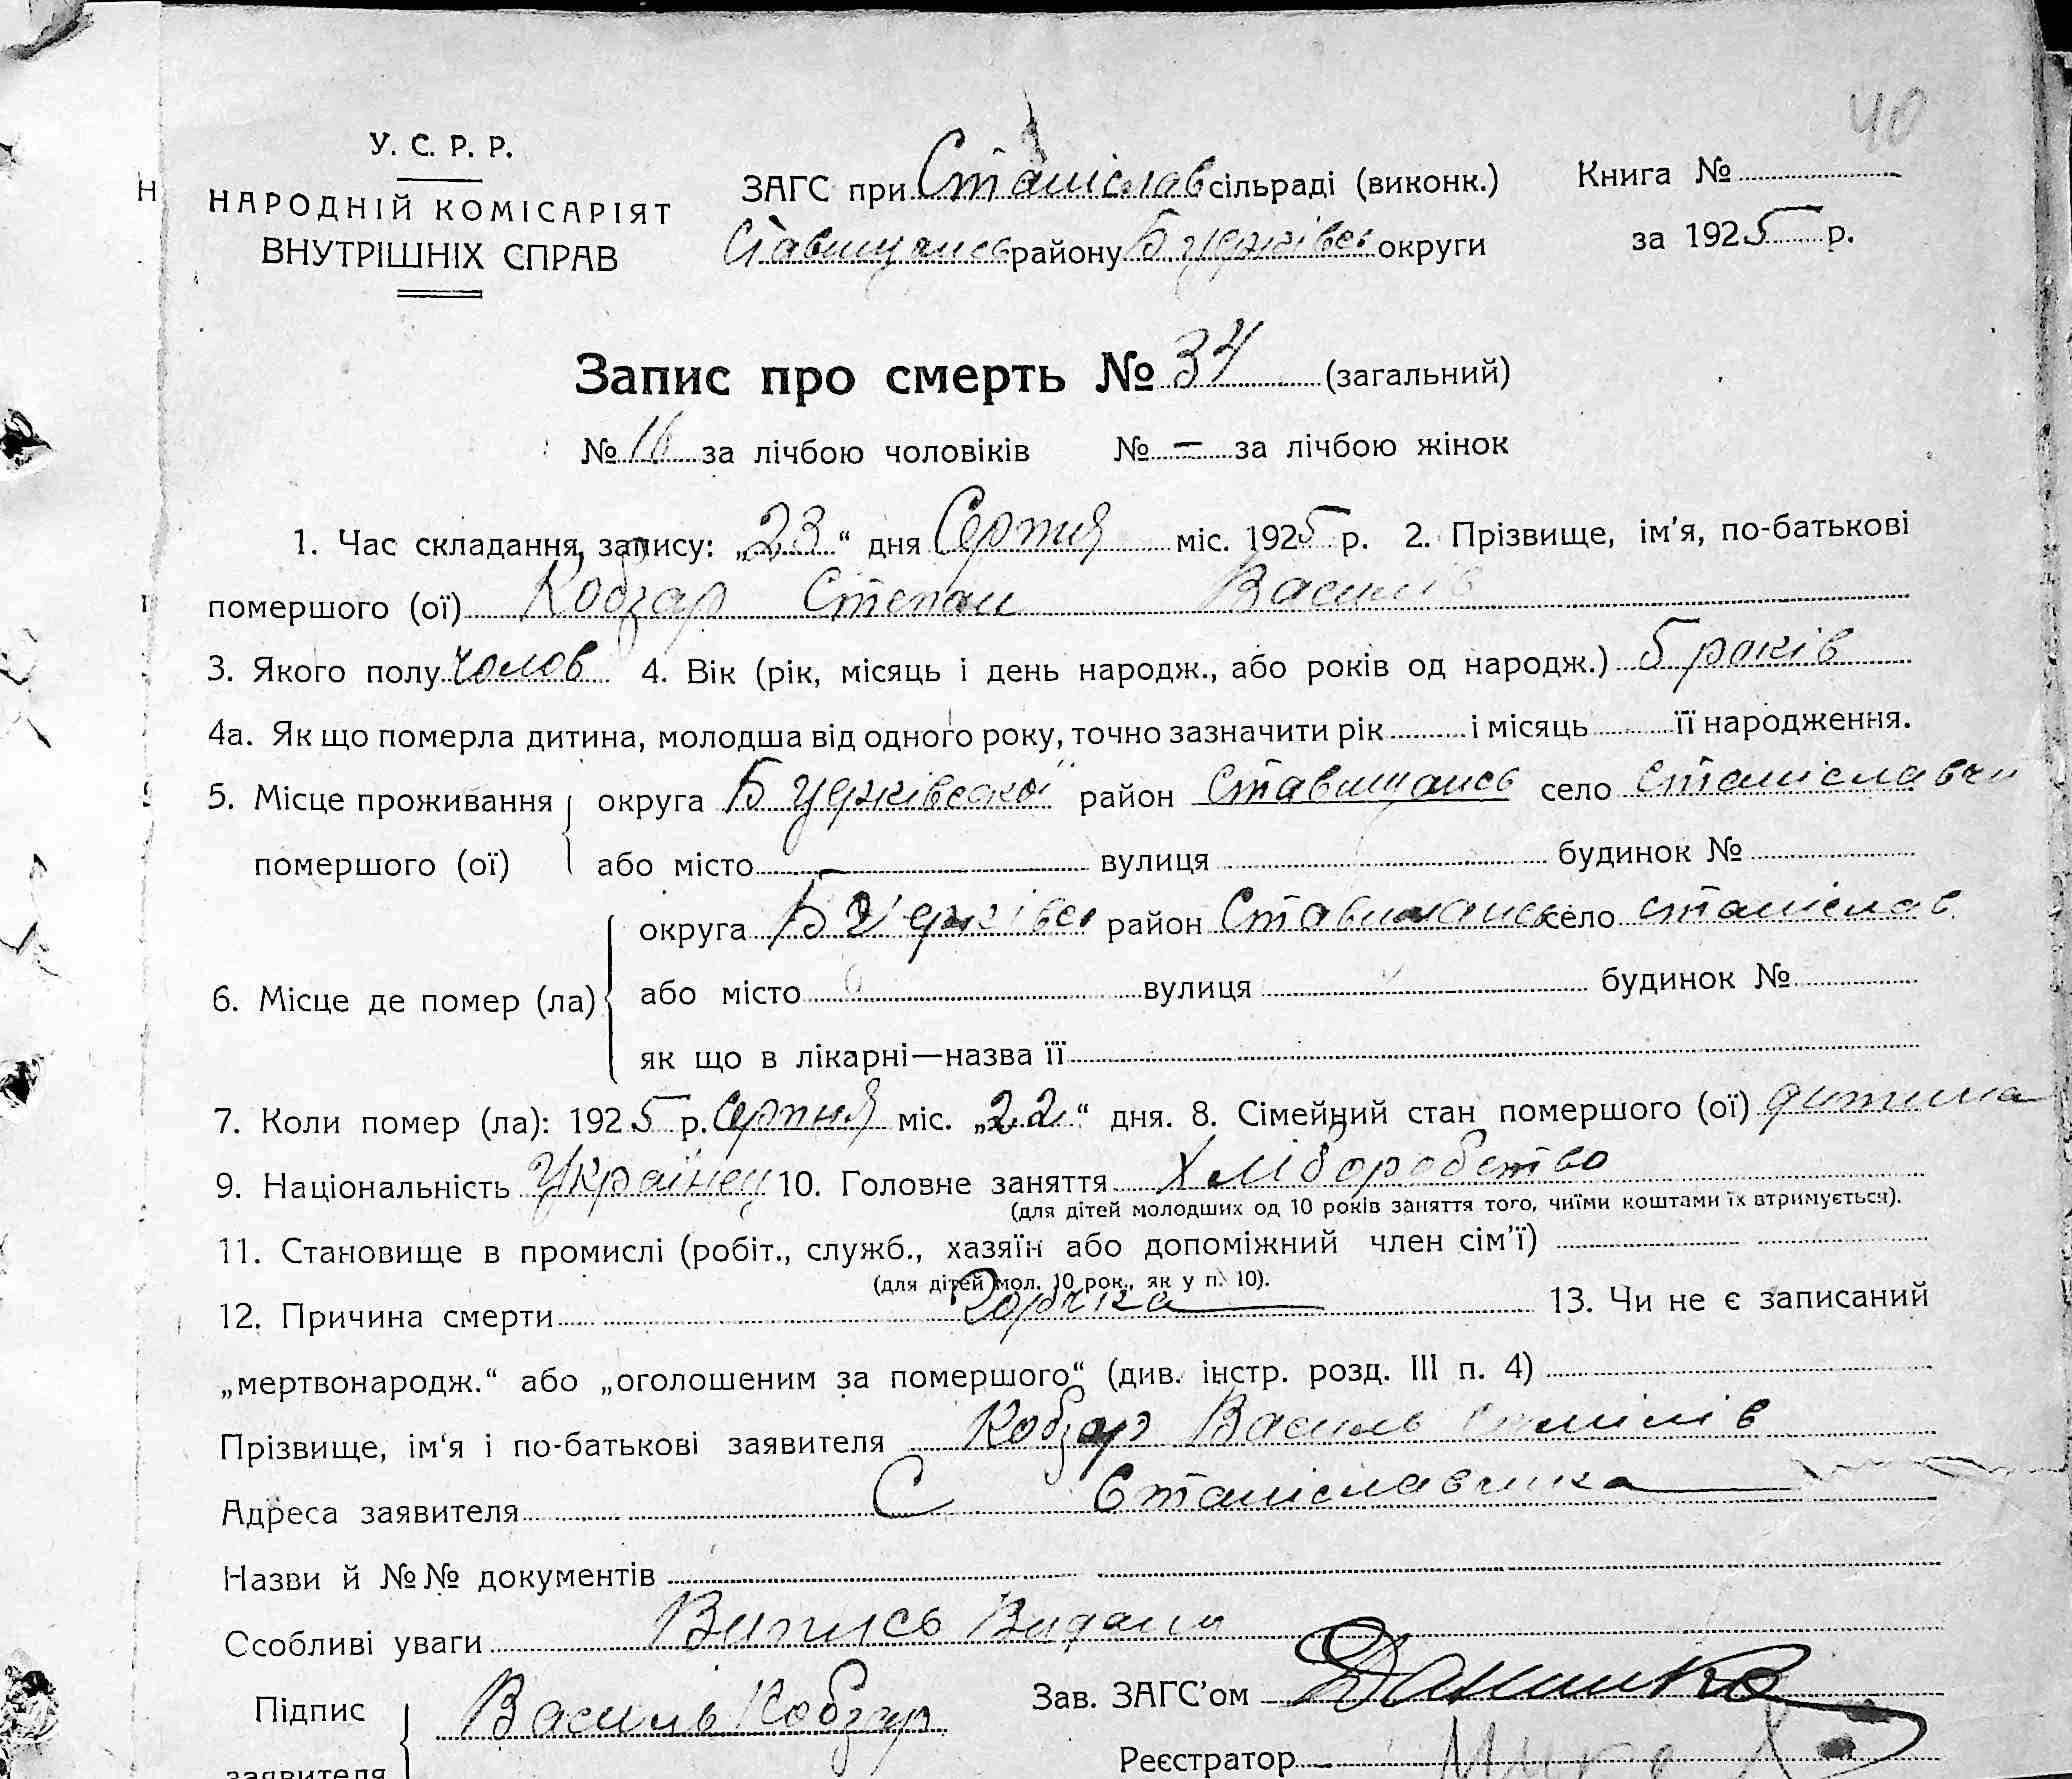 40
У. С. Р. Р.
НАРОДНІЙ КОМІСАРІЯТ
ВНУТРІШНІХ СПРАВ
ЗАГС при Станіслав сільраді (виконк.)
Ставищансь району Б Церківсь округи
Книга №
за 1925 р.
Запис про смерть № 34 (загальний)
№ 16 за лічбою чоловіків № — за лічбою жінок
1. Час складання запису: „23“ дня Серпня міс. 1925 р. 2. Прізвище, ім'я, по-батькові
помершого (ої) Кобзар Степан Василів
3. Якого полу чолов 4. Вік (рік, місяць і день народж., або років од народж.) 5 років
4а. Як що померла дитина, молодша від одного року, точно зазначити рік і місяць її народження.
5. Місце проживання помершого (ої) округа Б Церківської район Ставищансь село Станіславчи
або місто вулиця будинок №
6. Місце де помер (ла) округа Б Церківсь район Ставищансь село Станіслав
або місто вулиця будинок №
як що в лікарні—назва її
7. Коли помер (ла): 1925 р. Серпня міс. „22“ дня. 8. Сімейний стан помершого (ої) дитина
9. Національність Українец 10. Головне заняття Хліборобство
(для дітей молодших од 10 років заняття того, чиїми коштами їх втримується).
11. Становище в промислі (робіт., служб., хазяїн або допоміжний член сім'ї)
(для дітей мол. 10 рок., як у п. 10).
12. Причина смерти Горячка 13. Чи не є записаний
„мертвонародж.“ або „оголошеним за помершого“ (див. інстр. розд. III п. 4)
Прізвище, ім'я і по-батькові заявителя Кобзар Василь
Адреса заявителя С Станіславчика
Назви й №№ документів
Особливі уваги Випись Видана
Підпис заявителя Василь Кобзар
Зав. ЗАГС'ом
Реєстратор